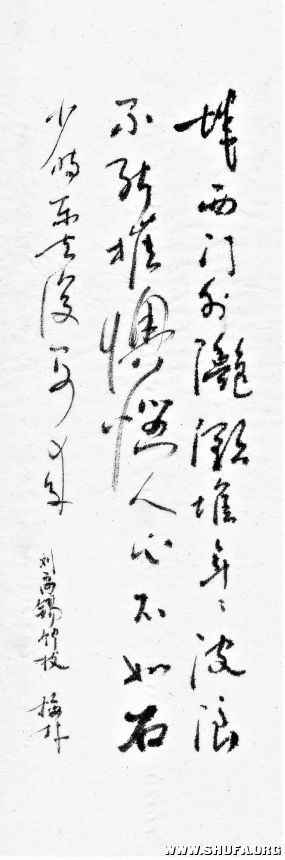 城西门外灩澦堆年々波浪
不能摧懊惱人心不如石
少時东去復西来
刘禹锡竹枝 梅
WWW.SHUFA.ORG